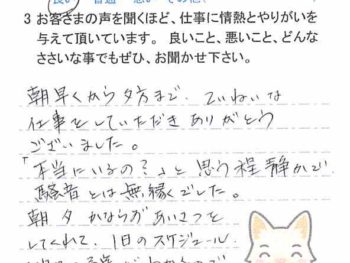 3 お客さまの声を聞くほど、仕事に情熱とやりがいを
与えて頂いています。 良いこと、悪いこと、どんな
ささいな事でもぜひ、お聞かせ下さい。
朝早くから夕方まで、ていねいな
仕事をしていただきありがとう
ございました。
「本当にいるの?」と思う程静かで
騒音とは無縁でした。
朝夕かならずあいさつを
してくれて、1日のスケジュール